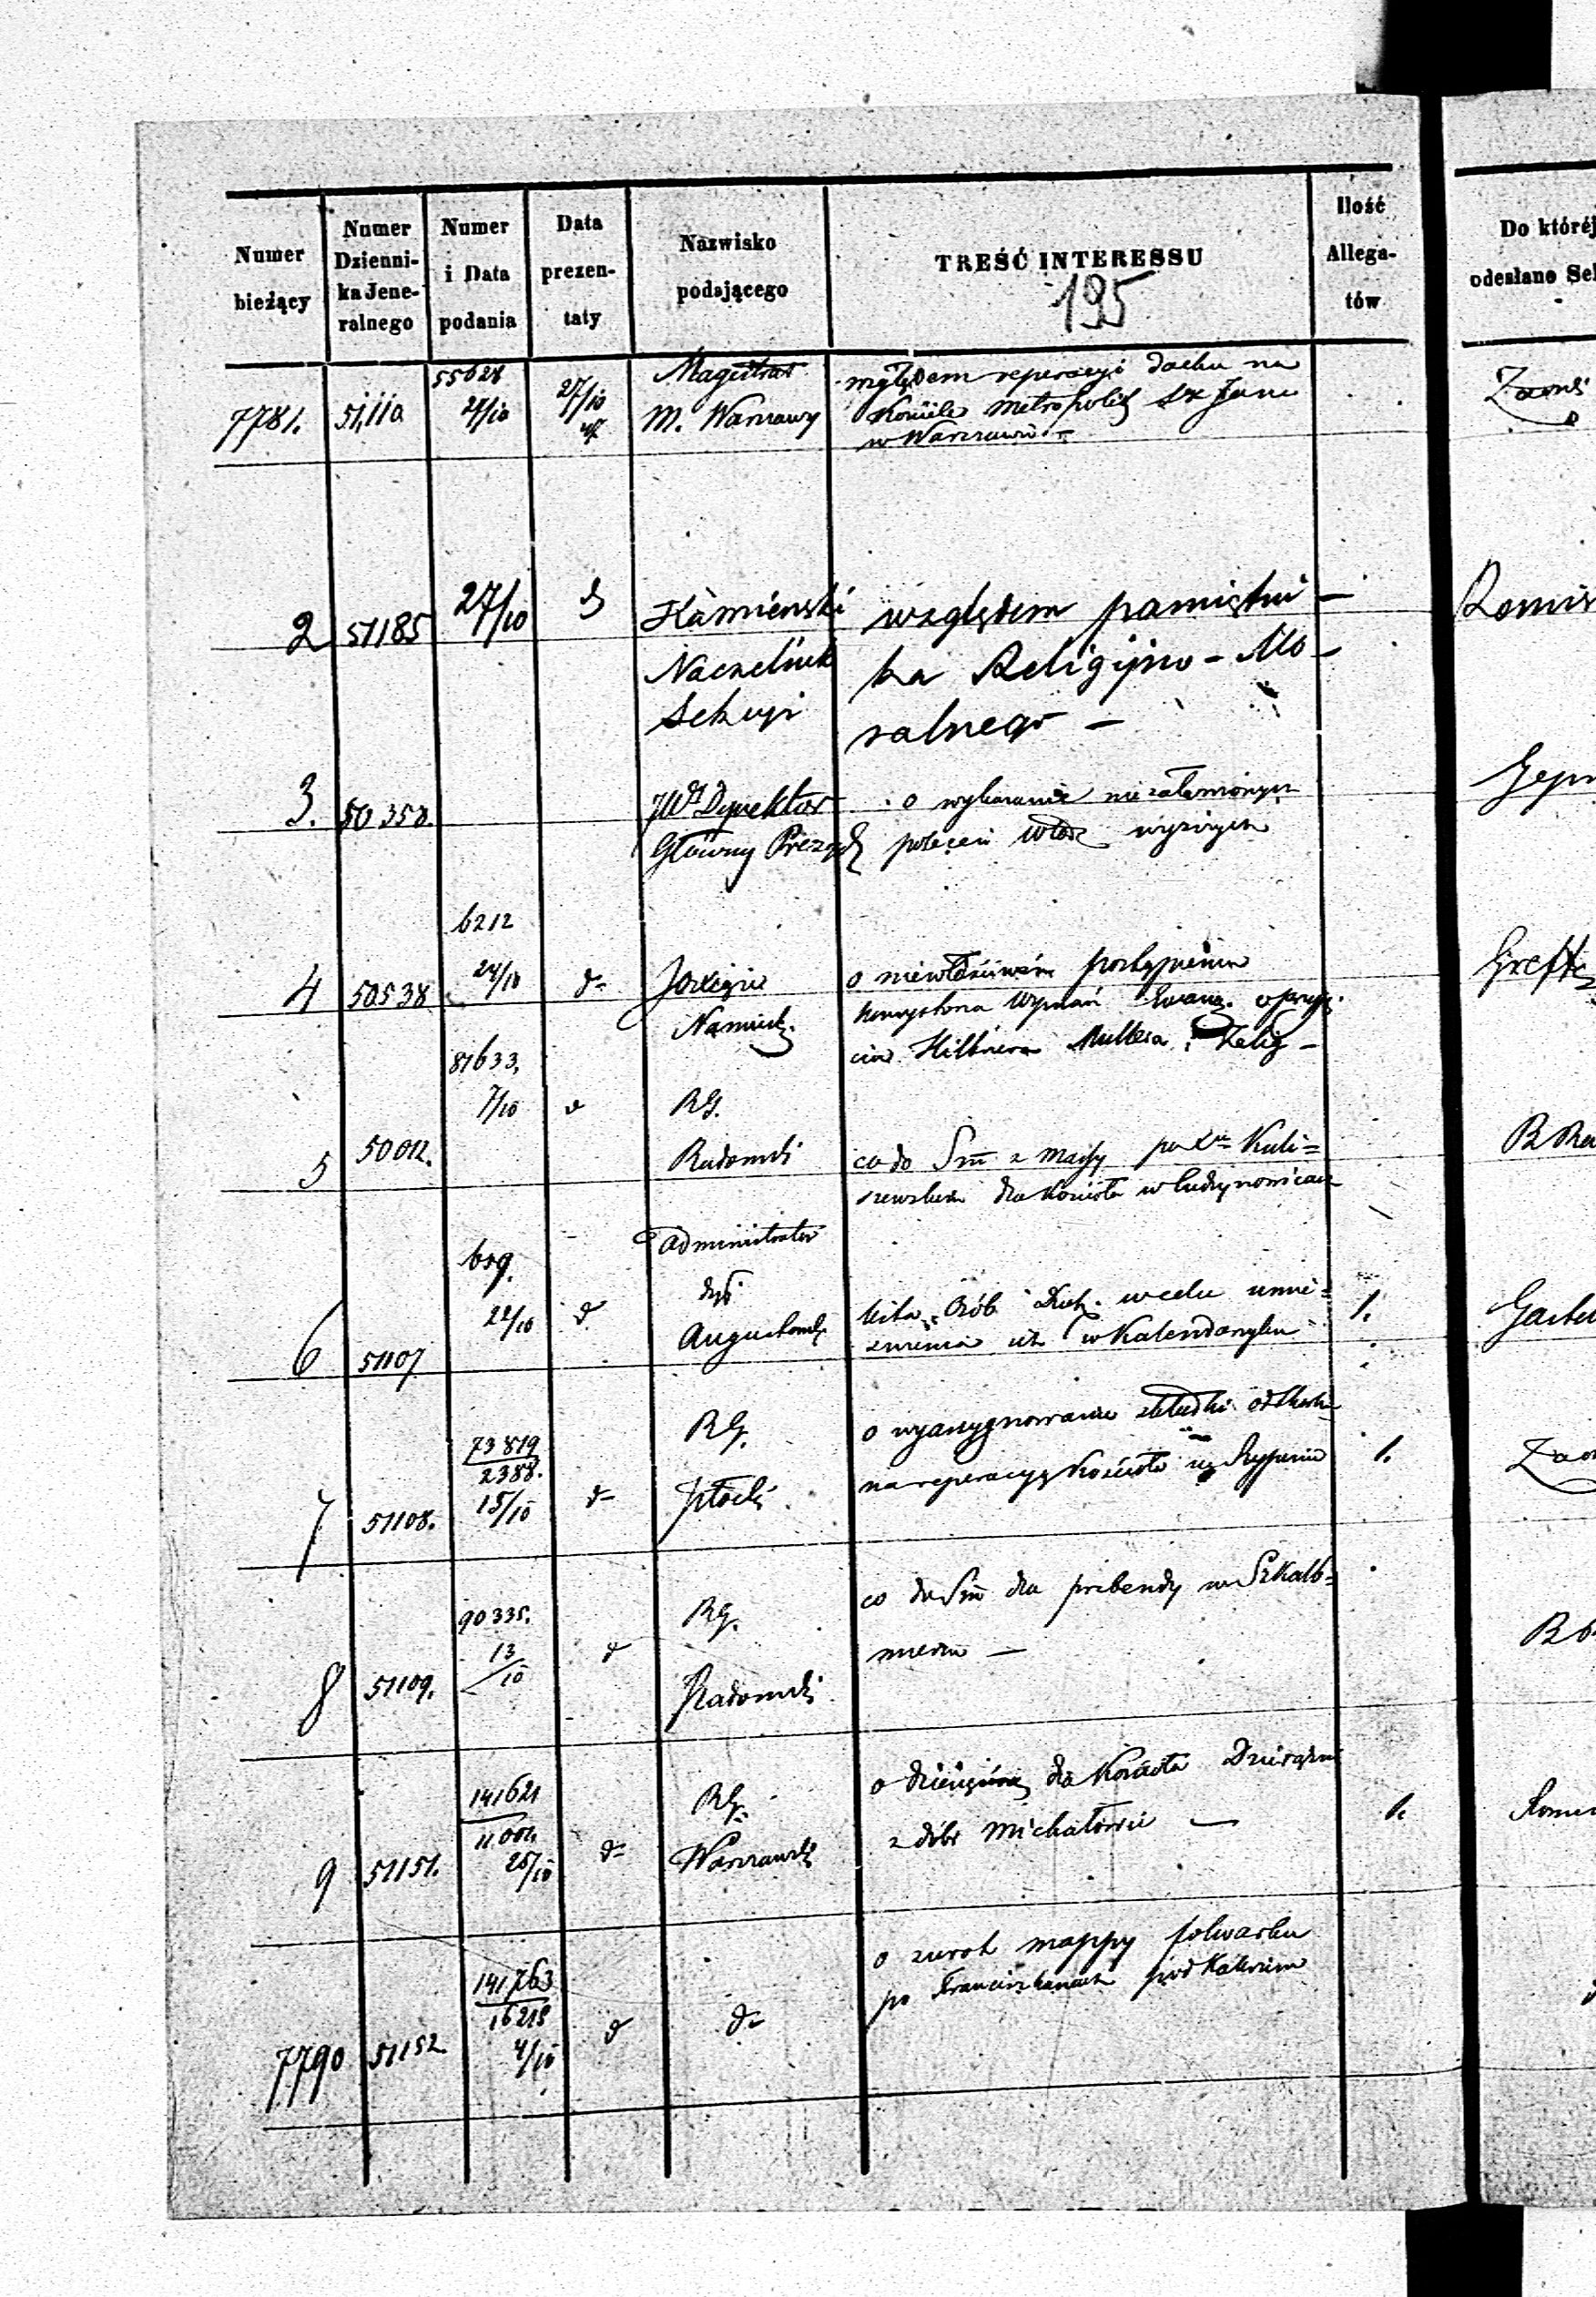 Numer bieżący
Numer Dzienni-ka Jene-ralnego
Numer i Data podania
Data prezen-taty
Nazwisko podającego
TREŚĆ INTERESSU
195
Ilość Allega-tów
Do której
odesłano
7781. 51,110 55628 27/10 Magistrat
M. Warszawy
względem reperacyi dachu na
Kościele Metropolit Św Jana
w Warszawie
2 51185 27/10 Kamieński
Naczelnik
Sekcyi
względem pamiętni-
ka Religijno-Mo-
ralnego -
3. 50358. JW Dyrektor
Główny Prezyd
o wykazanie niezałatwionych
poleceń Władz wyższych
4 50538 6212 24/10 d-
Namiest.
o niewłaściwem postąpieniu
Konsystorza Wyznań Ewang.
Hilbnera Mullera i
5 50012. 81633, 7/10 d RG.
Radomski
co do Sm z massy po Xu Kuli=
szewskim dla Kościoła w
6 51107 659. 22/10 d Administrator
dyj
Augustowsk
lista Osób Duch. w celu umie=
szczenia ich w Kalendarzyku 1.
7 51108. 73819
2388.
15/10 d- RG.
Płocki
o wyassygnowanie składki od
na reperacyą Kościoła w Rypinie 1.
8 51109. 90335. 13/10 d RG.
Radomski
co do Sm dla prebendy w Szkalb=
mierzu -
9 51151. 141621
11002.
25/10 d- RG.
Warszawski
o dziesięcinę dla Kościoła
z dóbr Michałowic - 1.
7790 51152 141763
16218
4/10 d d-
o zwrot mappy folwarku
po Franciszkanach pod Kaliszem